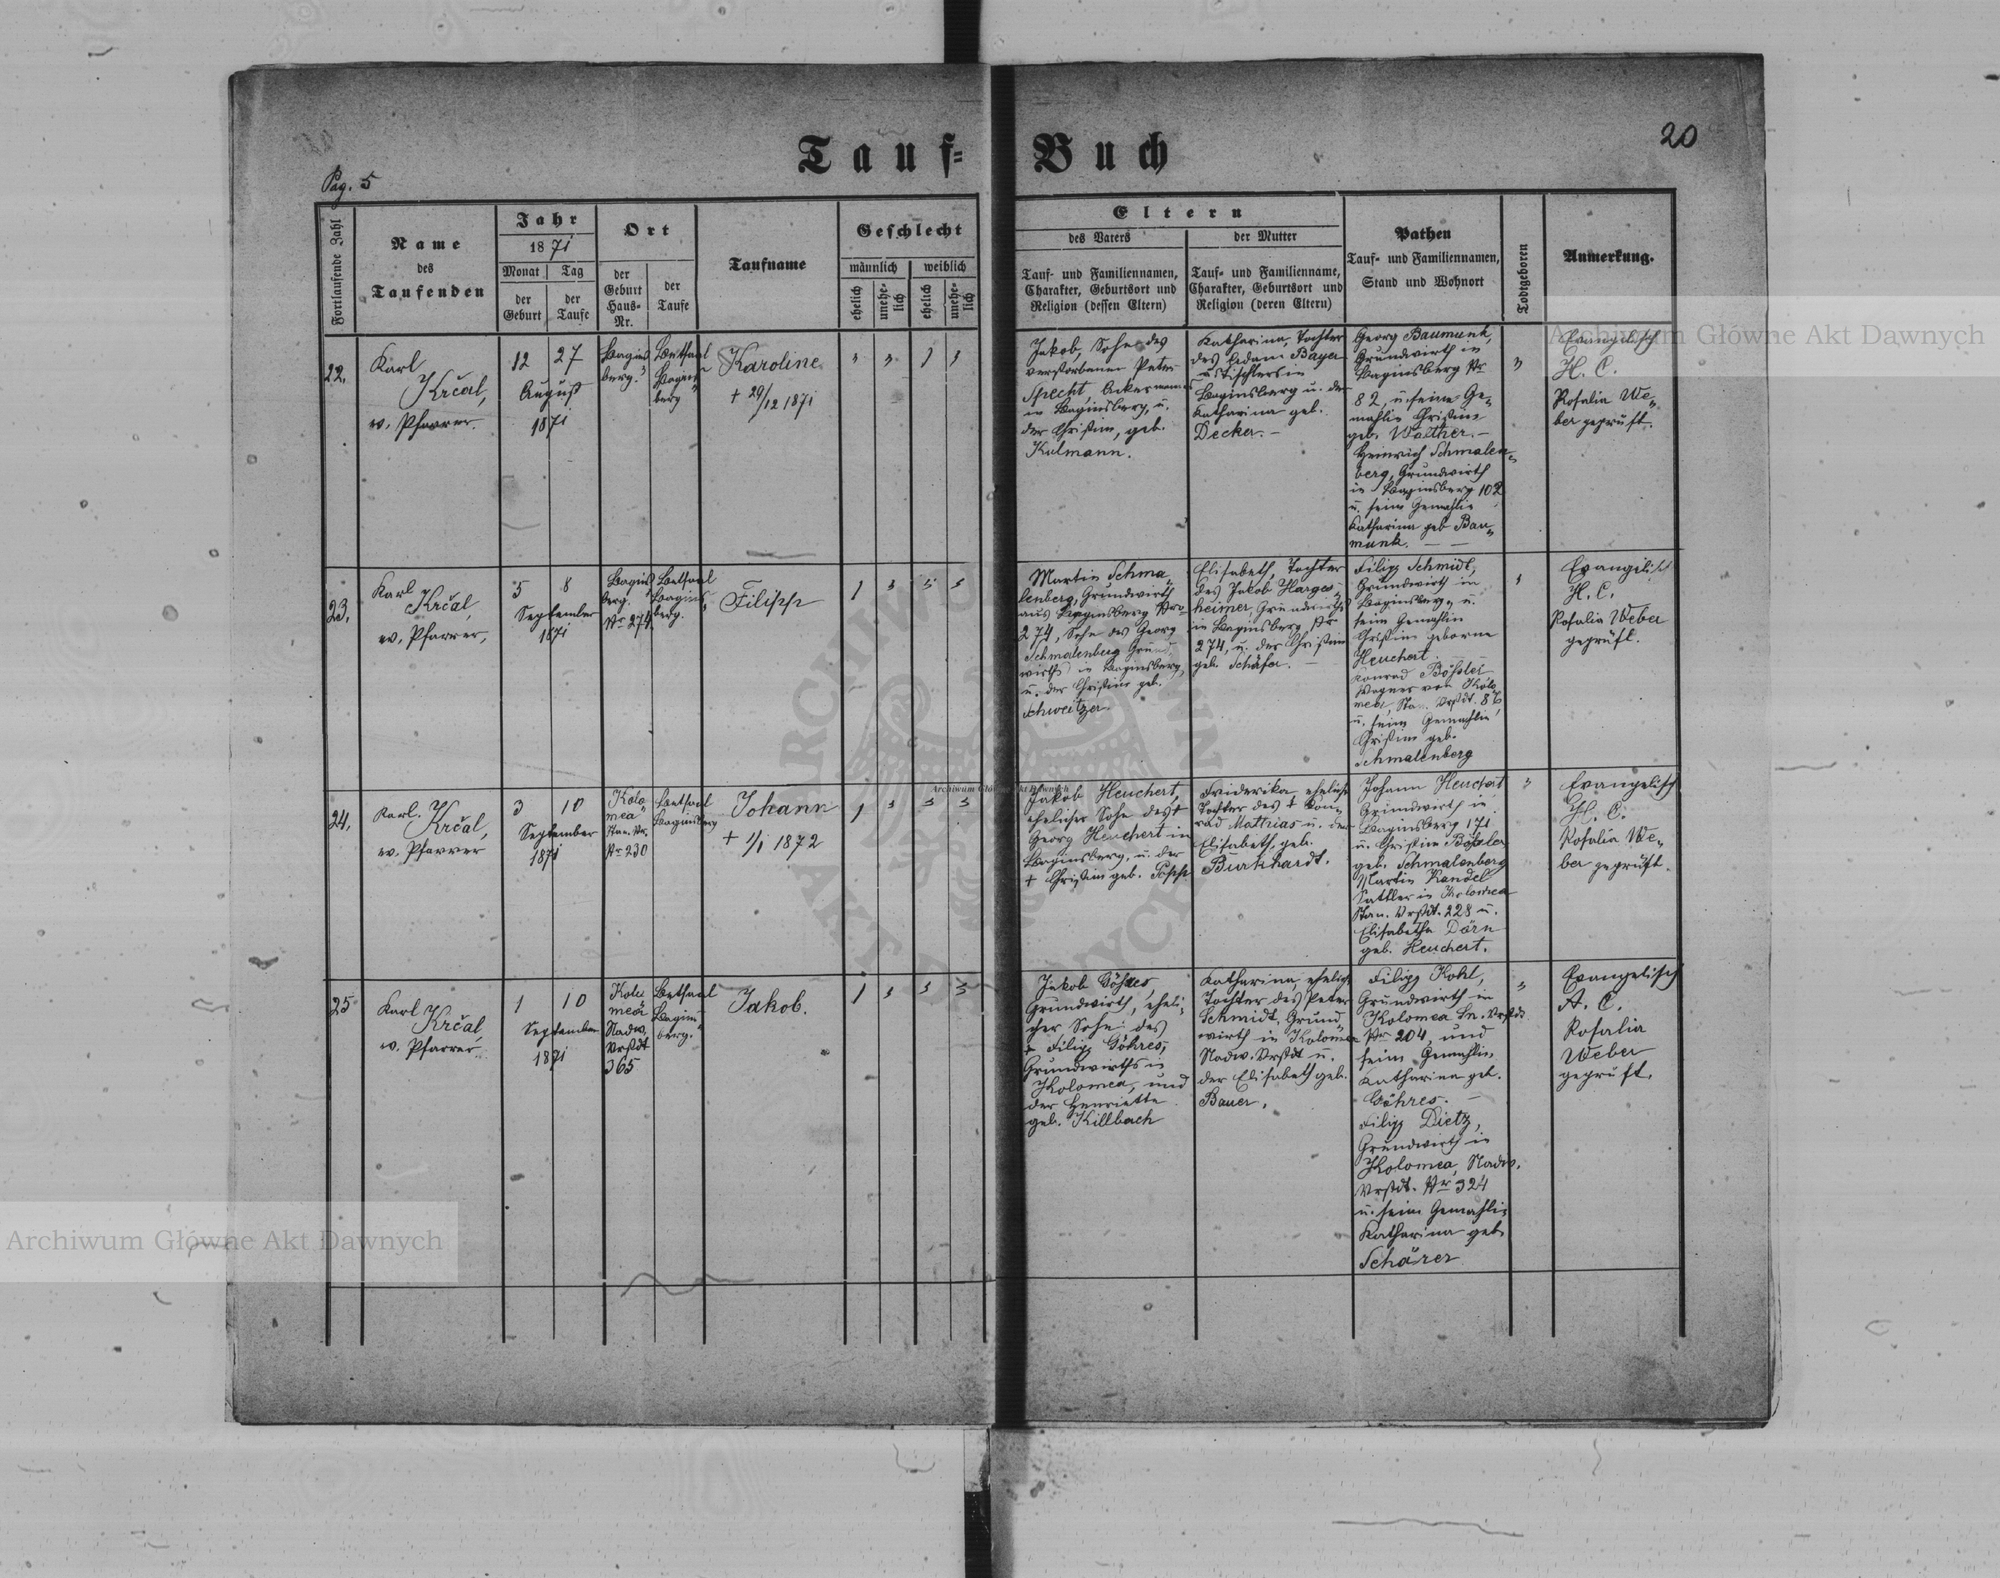 Tauf= Buch
20
Pag. 5
Fortlaufende Zahl
Name
des
Taufenden
Jahr
1871
Monat
Tag
der
Geburt
der
Taufe
Ort
der
Geburt
Haus-
Nr.
der
Taufe
Taufname
Geschlecht
männlich
weiblich
ehelich
unehe-
lich
ehelich
unehe-
lich
Eltern
des Vaters
der Mutter
Tauf- und Familiennamen,
Charakter, Geburtsort und
Religion (dessen Eltern)
Tauf- und Familienname,
Charakter, Geburtsort und
Religion (deren Eltern)
Pathen
Tauf- und Familiennamen,
Stand und Wohnort
Todtgeboren
Anmerkung.
22.
Karl
Krčal,
ev. Pfarrer.
12 27
August
1871
Bagins
berg.
Betsaal
Bagins
berg
Karoline
+ 29/12 1871
" " 1 "
Jakob, Sohn des
verstorbenen Peter
Specht, Ackermannes
in Baginsberg, u.
der Christine, geb.
Kulmann.
Katharina, Tochter
des Adam Bayer
Tischlers in
Baginsberg u. der
Katharina geb.
Decker. –
Georg Baumunk,
Grundwirth in
Baginsberg Nr
82, u. seine Ge-
mahlin Christine
geb. Walther. –
Heinrich Schmalen-
berg, Grundwirth
in Baginsberg 102
u. seine Gemahlin
Katharina geb Bau-
munk. –
"
Evangelisch
H. C.
Rosalia We-
ber geprüft.
23.
Karl
Krčal,
ev. Pfarrer,
5 8
September
1871
Bagins
berg.
Nr 274
Betsaal
Bagins
berg.
Filipp
1 " " "
Martin Schma-
lenberg, Grundwirth
aus Baginsberg Nro
274, Sohn des Georg
Schmalenberg Grund-
wirths in Baginsberg,
u. der Christine geb.
Schweitzer.
Elisabeth, Tochter
des Jakob Harges-
heimer, Grundwirths
in Baginsberg Nr
274, u. der Christine
geb. Schäfer. –
Filipp Schmidt,
Grundwirth in
Baginsberg, u.
seine Gemahlin
Christine geborne
Heuchert.
Konrad Bößler
Wagner von Kolo-
mea, Stan. Vrstdt. 86
u. seine Gemahlin
Christine geb.
Schmalenberg
"
Evangelisch
H. C.
Rosalia Weber
geprüft.
24.
Karl
Krčal,
ev. Pfarrer
3 10
September
1871
Kolo
mea
Stan. Vr.
Nr 230
Betsaal
Baginsberg
Johann
+ 1/1 1872
1 " " "
Jakob Heuchert,
ehelicher Sohn des +
Georg Heuchert in
Baginsberg, u. der
+ Christine geb. Popp
Friderika eheliche
Tochter des + Kon-
rad Matthias u. der
Elisabeth, geb.
Burkhardt.
Johann Heuchert
Grundwirth in
Baginsberg 171
u. Christine Bößler
geb. Schmalenberg
Martin Kandel
Sattler in Kolomea
Stan. Vrstdt. 228 u.
Elisabetha Dörn
geb. Heuchert.
"
Evangelisch
H. C.
Rosalia We-
ber geprüft.
25
Karl
Krčal,
ev. Pfarrer.
1 10
September
1871
Kolo
mea
Nadw.
Vrstdt
365
Betsaal
Bagins-
berg.
Jakob.
1 " " "
Jakob Göhres,
Grundwirth, eheli-
cher Sohn des
+ Filipp Göhres,
Grundwirths in
Kolomea, und
der Henriette
geb. Killbach
Katharina, eheliche
Tochter des Peter
Schmidt, Grund-
wirth in Kolomea
Nadw. Vrstdt u.
der Elisabeth geb.
Bauer.
Filipp Kohl,
Grundwirth in
Kolomea Sn. Vrstdt.
Nr 204, und
seine Gemahlin
Katharina geb.
Göhres. –
Filipp Dietz,
Grundwirth in
Kolomea, Nadw.
Vrstdt. Nr 324
u. seine Gemahlin
Katharina geb
Schärer
"
Evangelisch
A. C.
Rosalia
Weber
geprüft.
Archiwum Główne Akt Dawnych
Archiwum Główne Akt Dawnych
Archiwum Główne Akt Dawnych